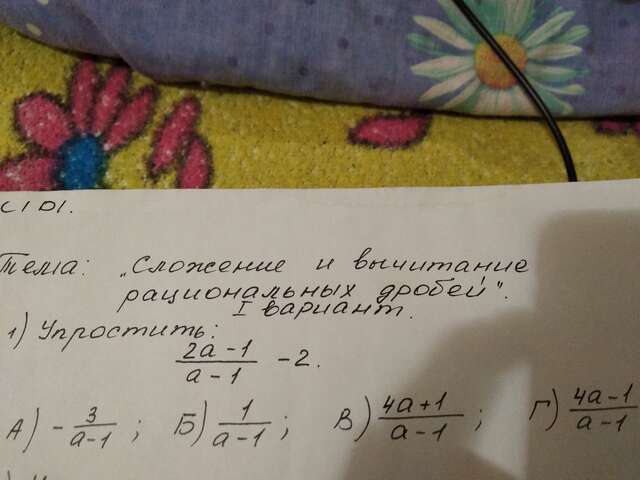 Тема: „Сложение и вычитание
рациональных дробей".
I вариант.
1) Упростить:
(2a-1)/(a-1) -2.
А) -3/(a-1); Б) 1/(a-1); В) (4a+1)/(a-1); Г) (4a-1)/(a-1)